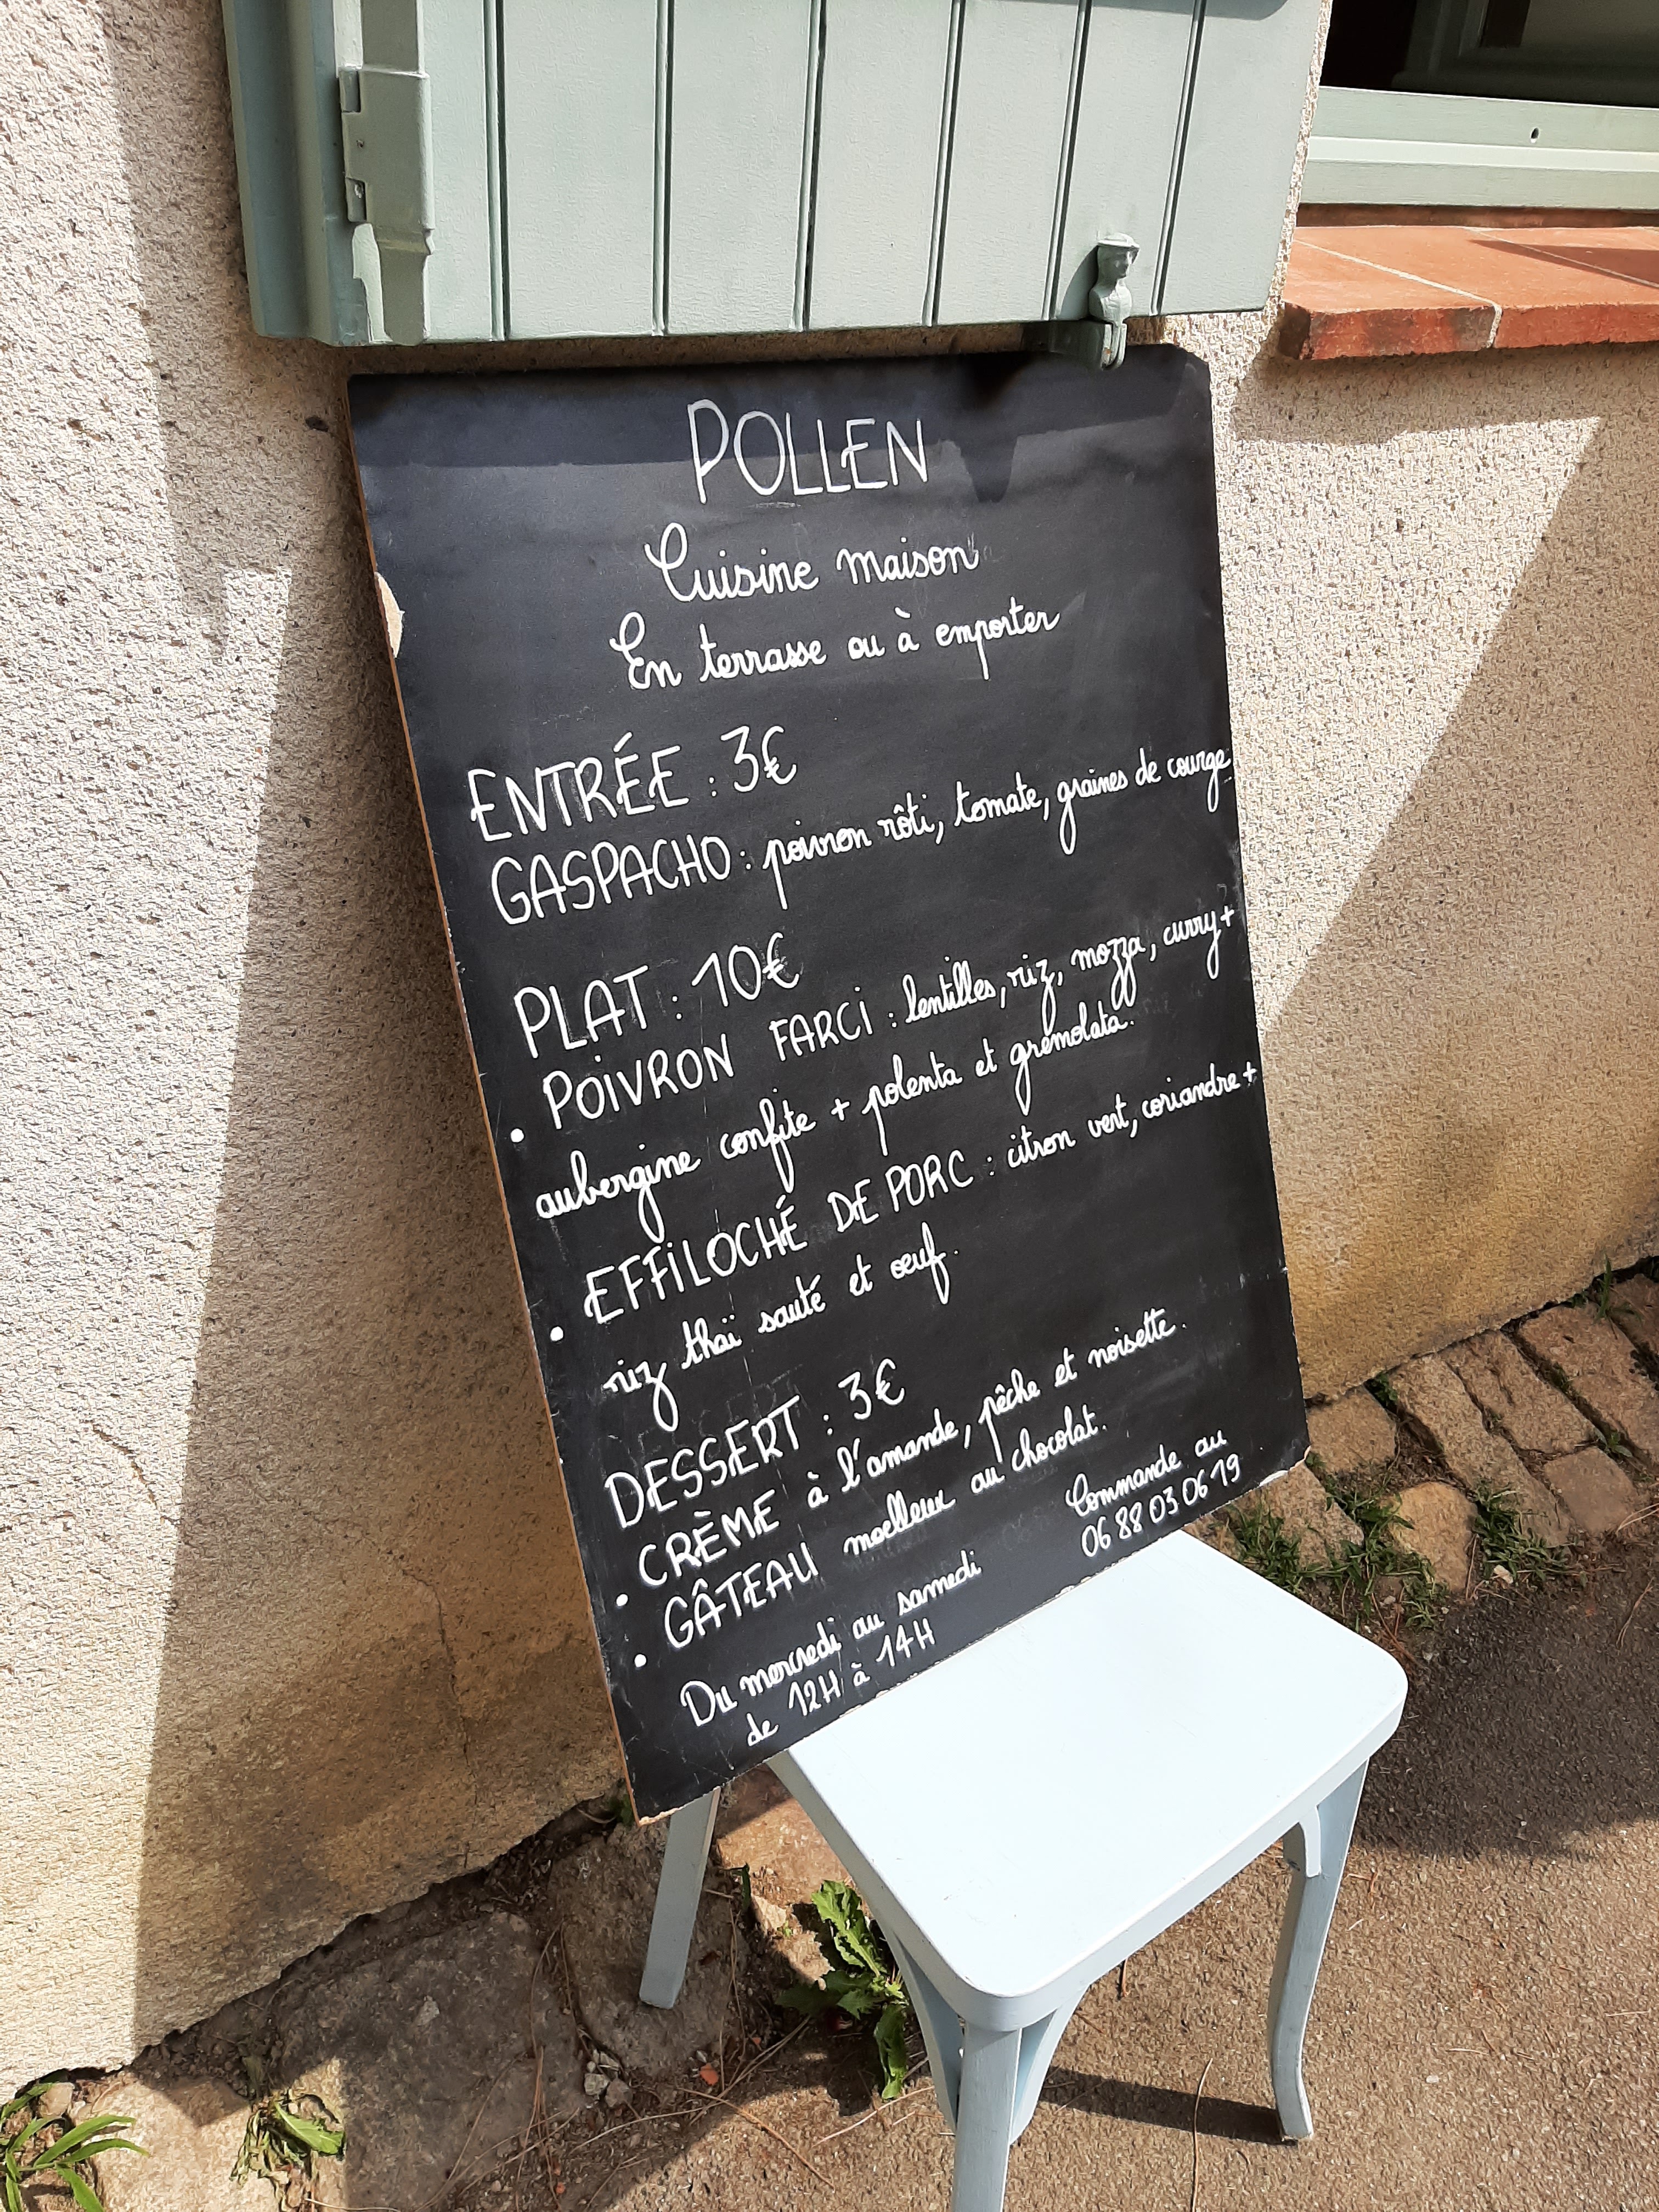 POLLEN
Cuisine maison
En terrasse ou à emporter
ENTRÉE : 3€
GASPACHO : poivron rôti, tomate, graines de courge
PLAT : 10€
• POIVRON FARCI : lentilles, riz, mozza, curry +
aubergine confite + polenta et grémolata.
• EFFILOCHÉ DE PORC : citron vert, coriandre +
riz thaï sauté et œuf.
DESSERT : 3€
• CRÈME à l'amande, pêche et noisette.
• GÂTEAU moelleux au chocolat.
Du mercredi au samedi
de 12H à 14H
Commande au
06 88 03 06 19